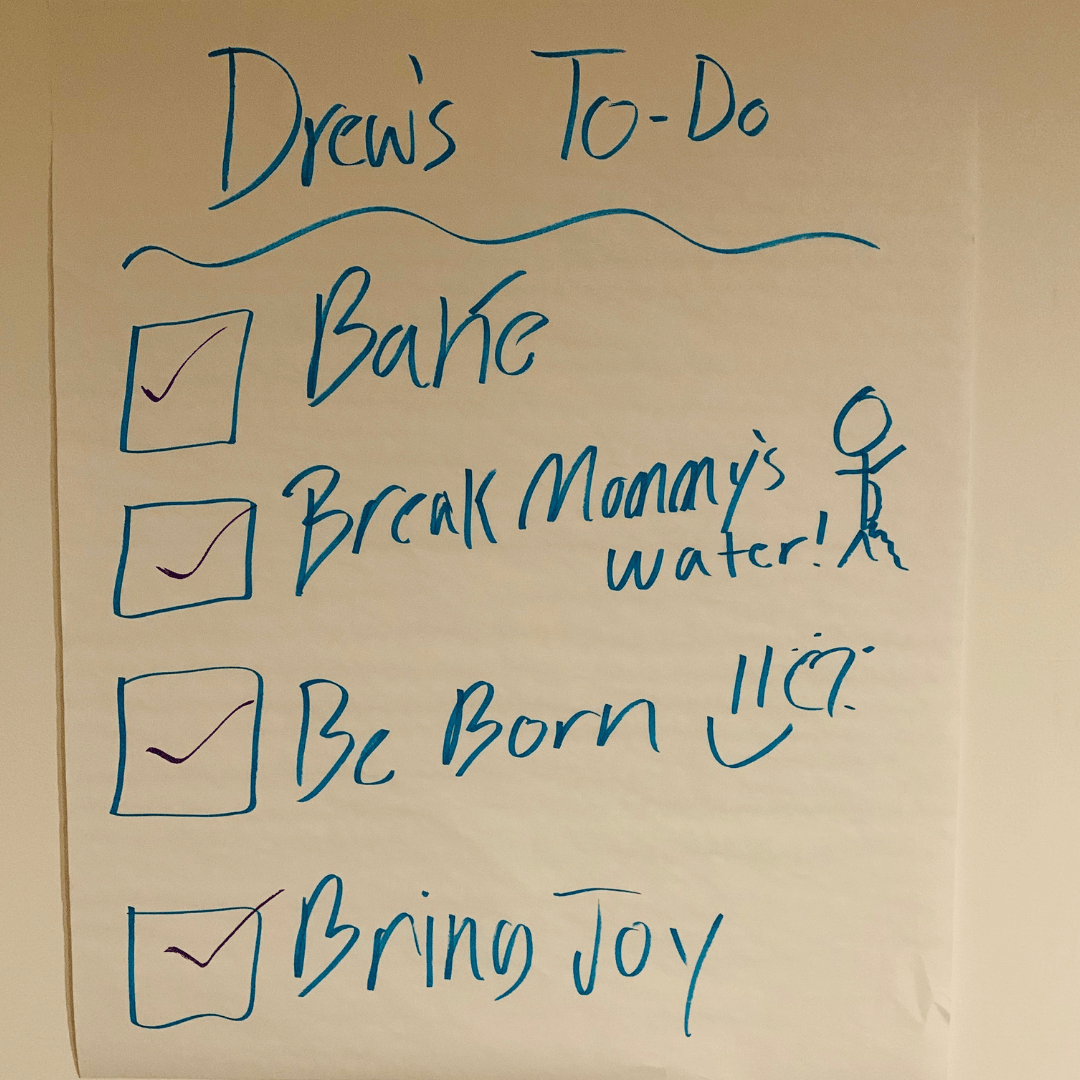 Drew's To-Do
Bake
Break Mommy's
water!
Be Born
Bring Joy